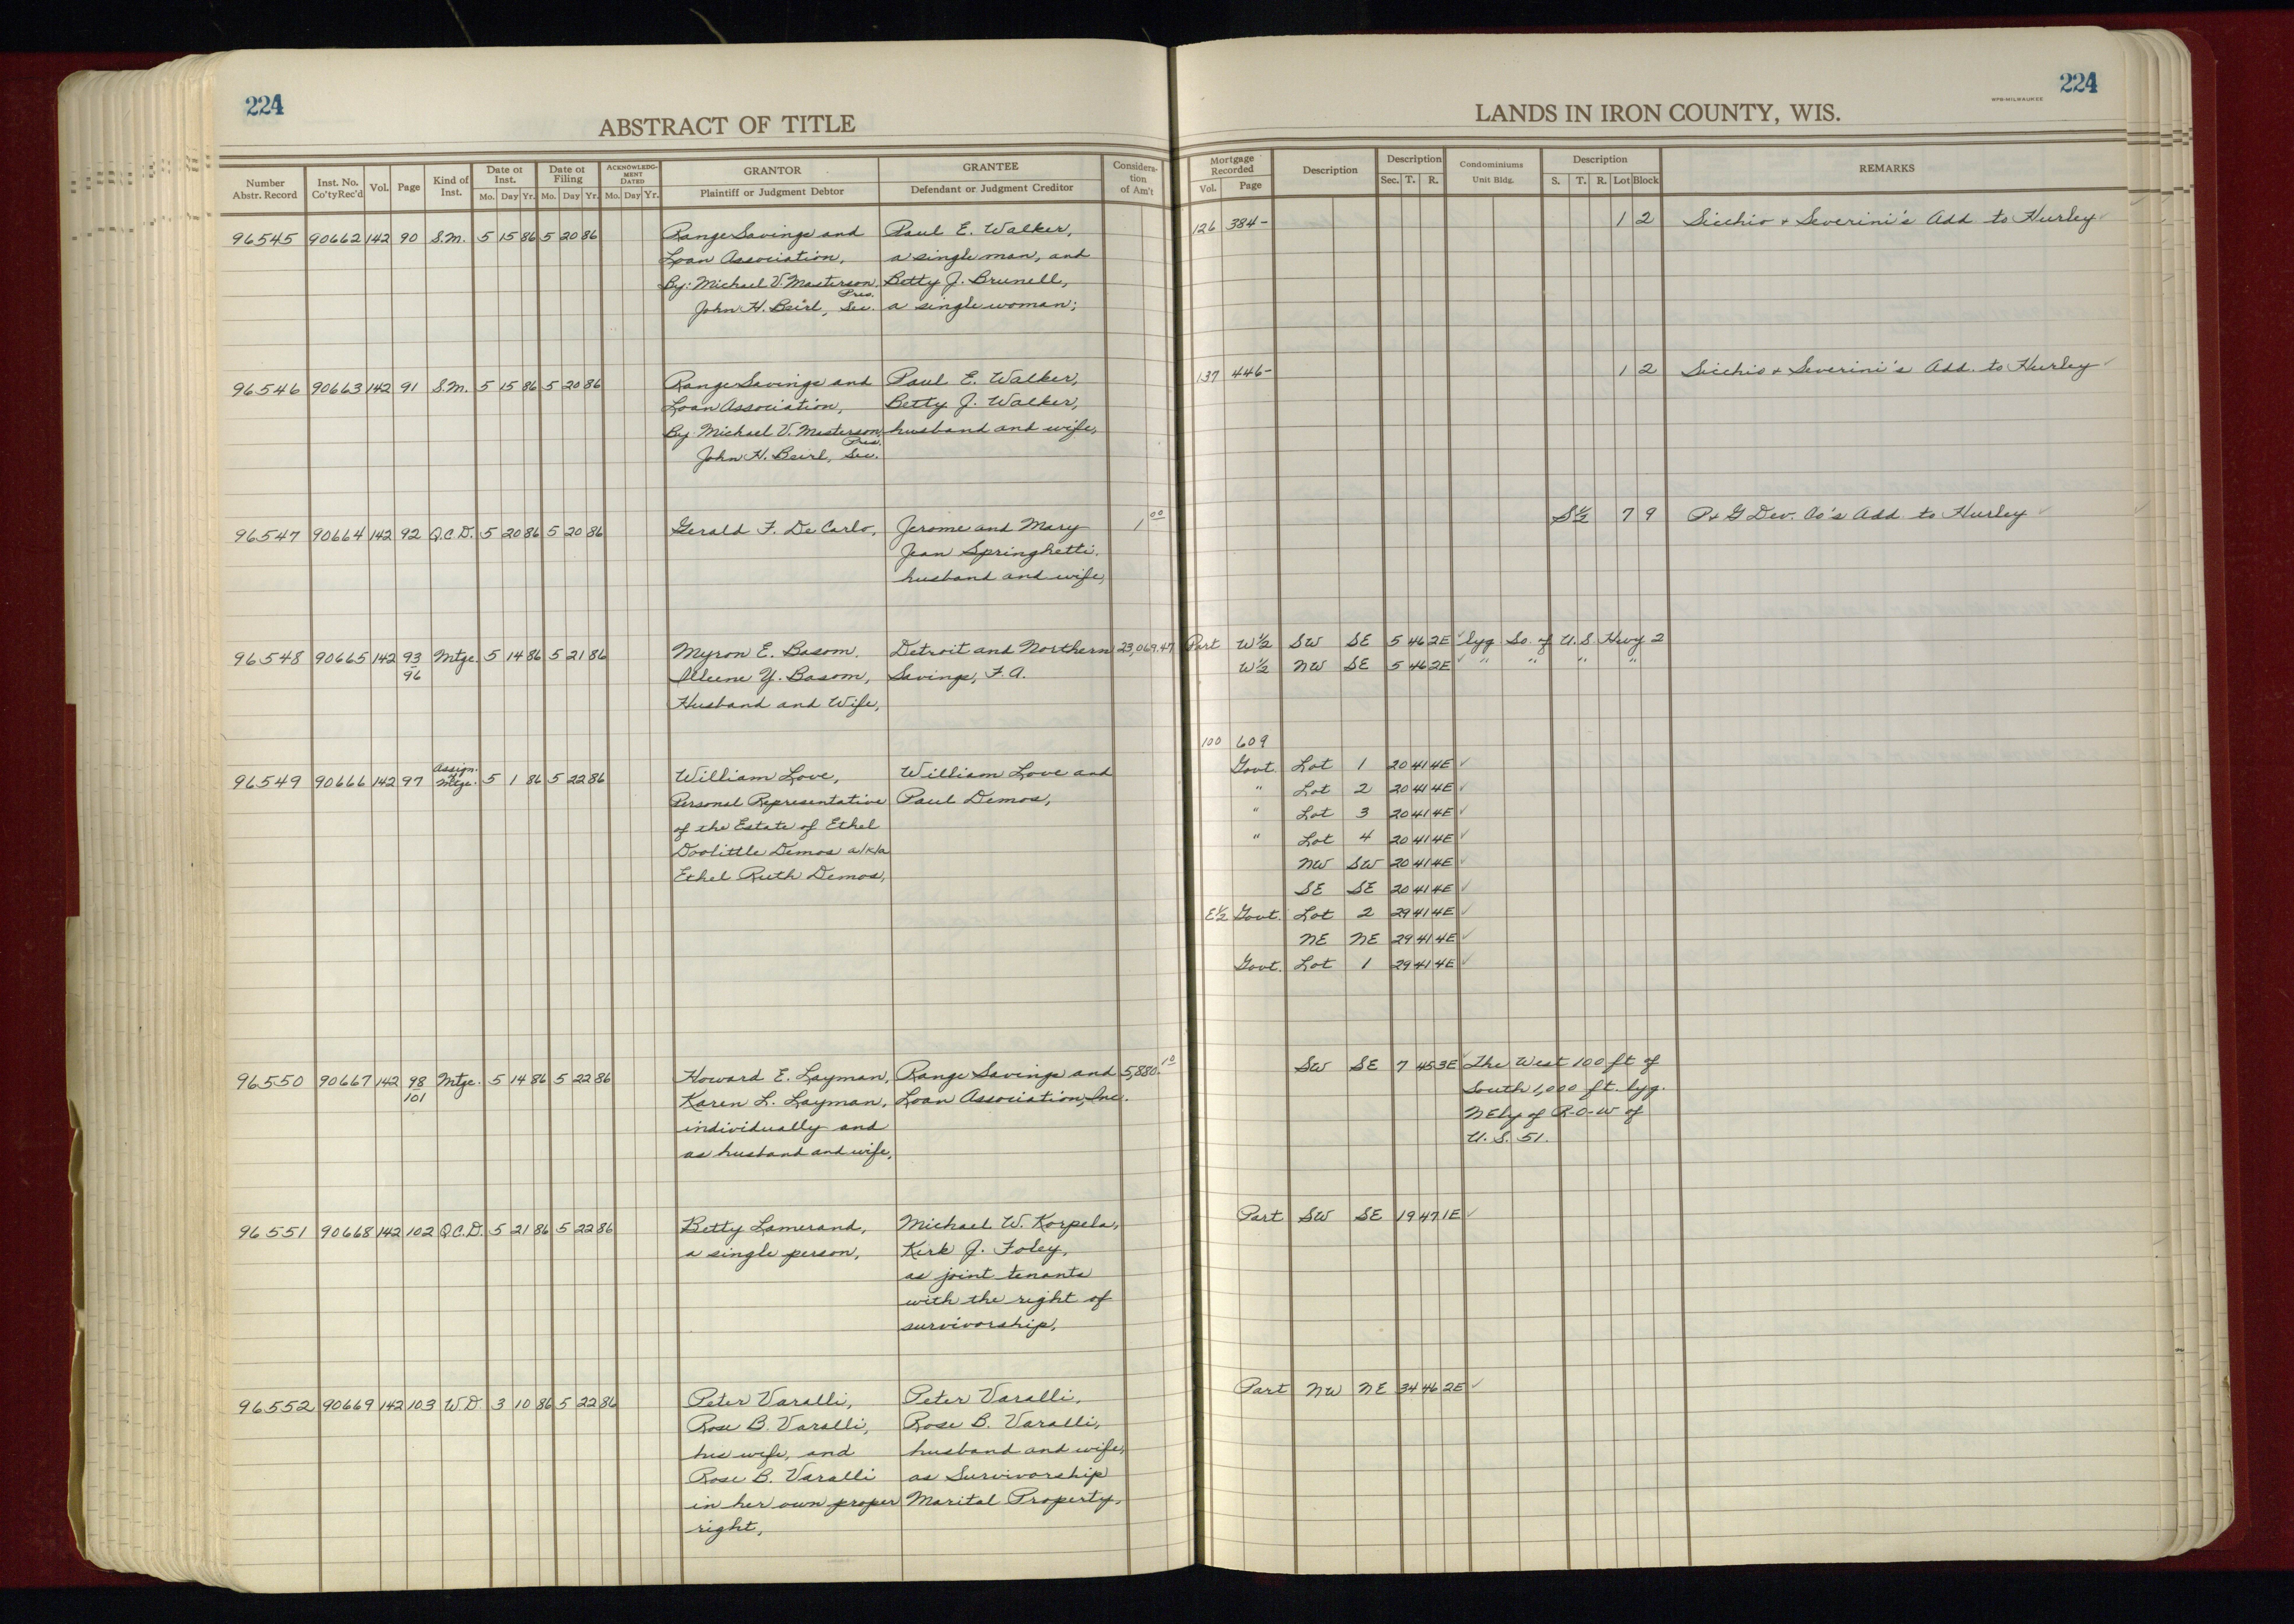 224
ABSTRACT OF TITLE
Number Abstr. Record
Inst. No. Co'tyRec'd
Vol.
Page
Kind of Inst.
Date of Inst. Mo. Day Yr.
Date of Filing Mo. Day Yr.
ACKNOWLEDGMENT DATED Mo. Day Yr.
GRANTOR
Plaintiff or Judgment Debtor
GRANTEE
Defendant or Judgment Creditor
Consideration of Am't
96545 90662 142 90 S.M. 5 15 86 5 20 86 Range Savings and Paul E. Walker,
Loan Association, a single man, and
By: Michael V. Masterson, Pres. Betty J. Brunell,
John H. Beirl, Sec. a single woman;
96546 90663 142 91 S.M. 5 15 86 5 20 86 Range Savings and Paul E. Walker,
Loan Association, Betty J. Walker,
By: Michael V. Masterson, Pres. husband and wife,
John H. Beirl, Sec.
96547 90664 142 92 Q.C.D. 5 20 86 5 20 86 Gerald F. De Carlo, Jerome and Mary 1 00
Jean Springhetti,
husband and wife,
96548 90665 142 93 Mtge. 5 14 86 5 21 86 Myron E. Basom, Detroit and Northern 23,069.47
96 Y. Basom, Savings, F.A.
Husband and Wife,
96549 90666 142 97 Assign. of Mtge. 5 1 86 5 22 86 William Love, William Love and
Personal Representative Paul Demos,
of the Estate of Ethel
Doolittle Demos a/k/a
Ethel Ruth Demos,
96550 90667 142 98 Mtge. 5 14 86 5 22 86 Howard E. Layman, Range Savings and 5,880.10
101 Karen L. Layman, Loan Association, Inc.
individually and
as husband and wife,
96551 90668 142 102 Q.C.D. 5 21 86 5 22 86 Betty Lamerand, Michael W. Korpela,
a single person, Kirk J. Foley,
as joint tenants
with the right of
survivorship,
96552 90669 142 103 W.D. 3 10 86 5 22 86 Peter Varalli, Peter Varalli,
Rose B. Varalli, Rose B. Varalli,
his wife, and husband and wife,
Rose B. Varalli as Survivorship
in her own proper Marital Property,
right,
224
WPB-MILWAUKEE
LANDS IN IRON COUNTY, WIS.
Mortgage Recorded Vol. Page
Description
Description Sec. T. R.
Condominiums Unit Bldg.
Description S. T. R. Lot Block
REMARKS
126 384- 1 2 Sicchio & Severini's Add. to Hurley ✓
137 446- 1 2 Sicchio & Severini's Add. to Hurley ✓
S½ 7 9 P & G Dev. Co's Add. to Hurley ✓
Part W½ SW SE 5 46 2E ✓ lyg So. of U.S Hwy 2
W½ NW SE 5 46 2E ✓ " " " "
100 609
Govt. Lot 1 20 41 4E ✓
" Lot 2 20 41 4E ✓
" Lot 3 20 41 4E ✓
" Lot 4 20 41 4E ✓
NW SW 20 41 4E ✓
SE SE 20 41 4E ✓
E½ Govt. Lot 2 29 41 4E ✓
NE NE 29 41 4E ✓
Govt. Lot 1 29 41 4E ✓
SW SE 7 45 3E ✓ The West 100 ft of
South 1,000 ft. lyg.
NEly of R-O-W of
U.S. 51.
Part SW SE 19 47 1E ✓
Part NW NE 34 46 2E ✓